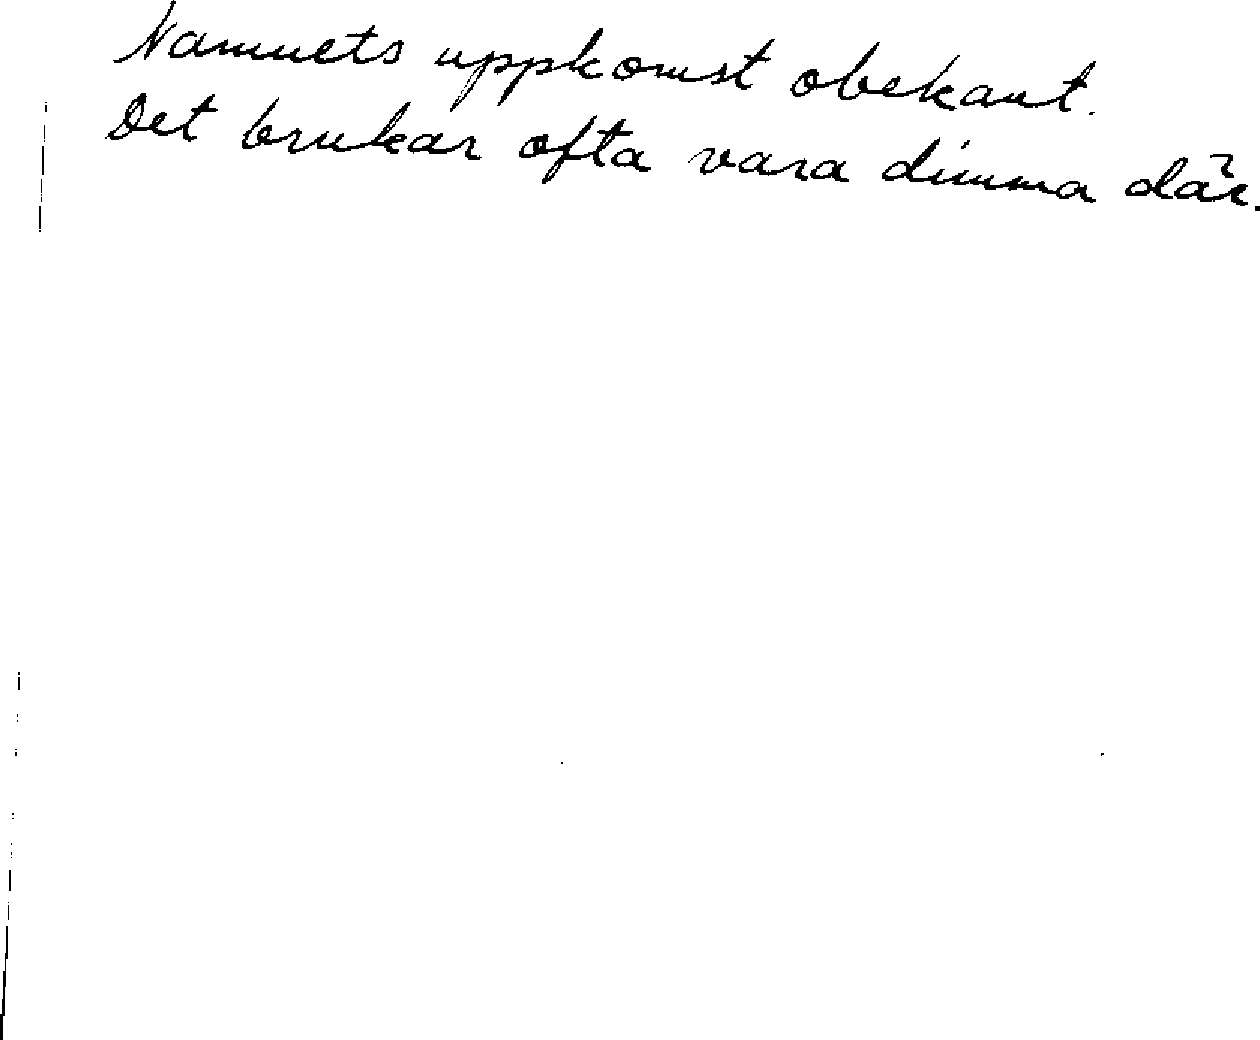 Namnets uppkomst obekant.
Det brukar ofta vara dimma där.